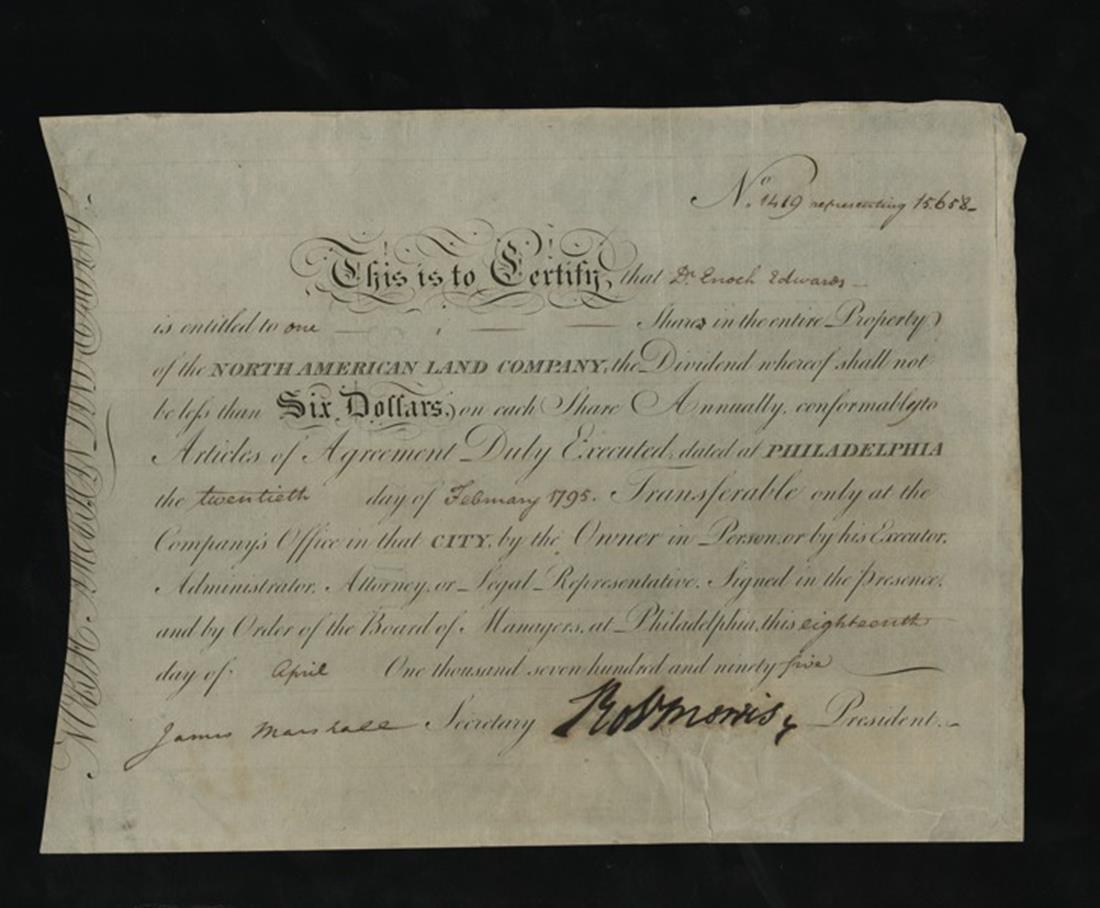 No. 1419 representing 15.658-
This is to Certify, that Dr. Enoch Edwards
is entitled to one Share in the entire Property
of the NORTH AMERICAN LAND COMPANY, the Dividend whereof shall not
be less than Six Dollars, on each Share Annually, conformably to
Articles of Agreement Duly Executed, dated at PHILADELPHIA
the twentieth day of February 1795. Transferable only at the
Company's Office in that CITY, by the Owner in Person, or by his Executor,
Administrator, Attorney, or Legal Representative. Signed in the Presence,
and by Order of the Board of Managers, at Philadelphia, this eighteenth
day of April One thousand seven hundred and ninety five
James Marshall Secretary Robt Morris President.
NORTH AMERICAN LAND COMPANY